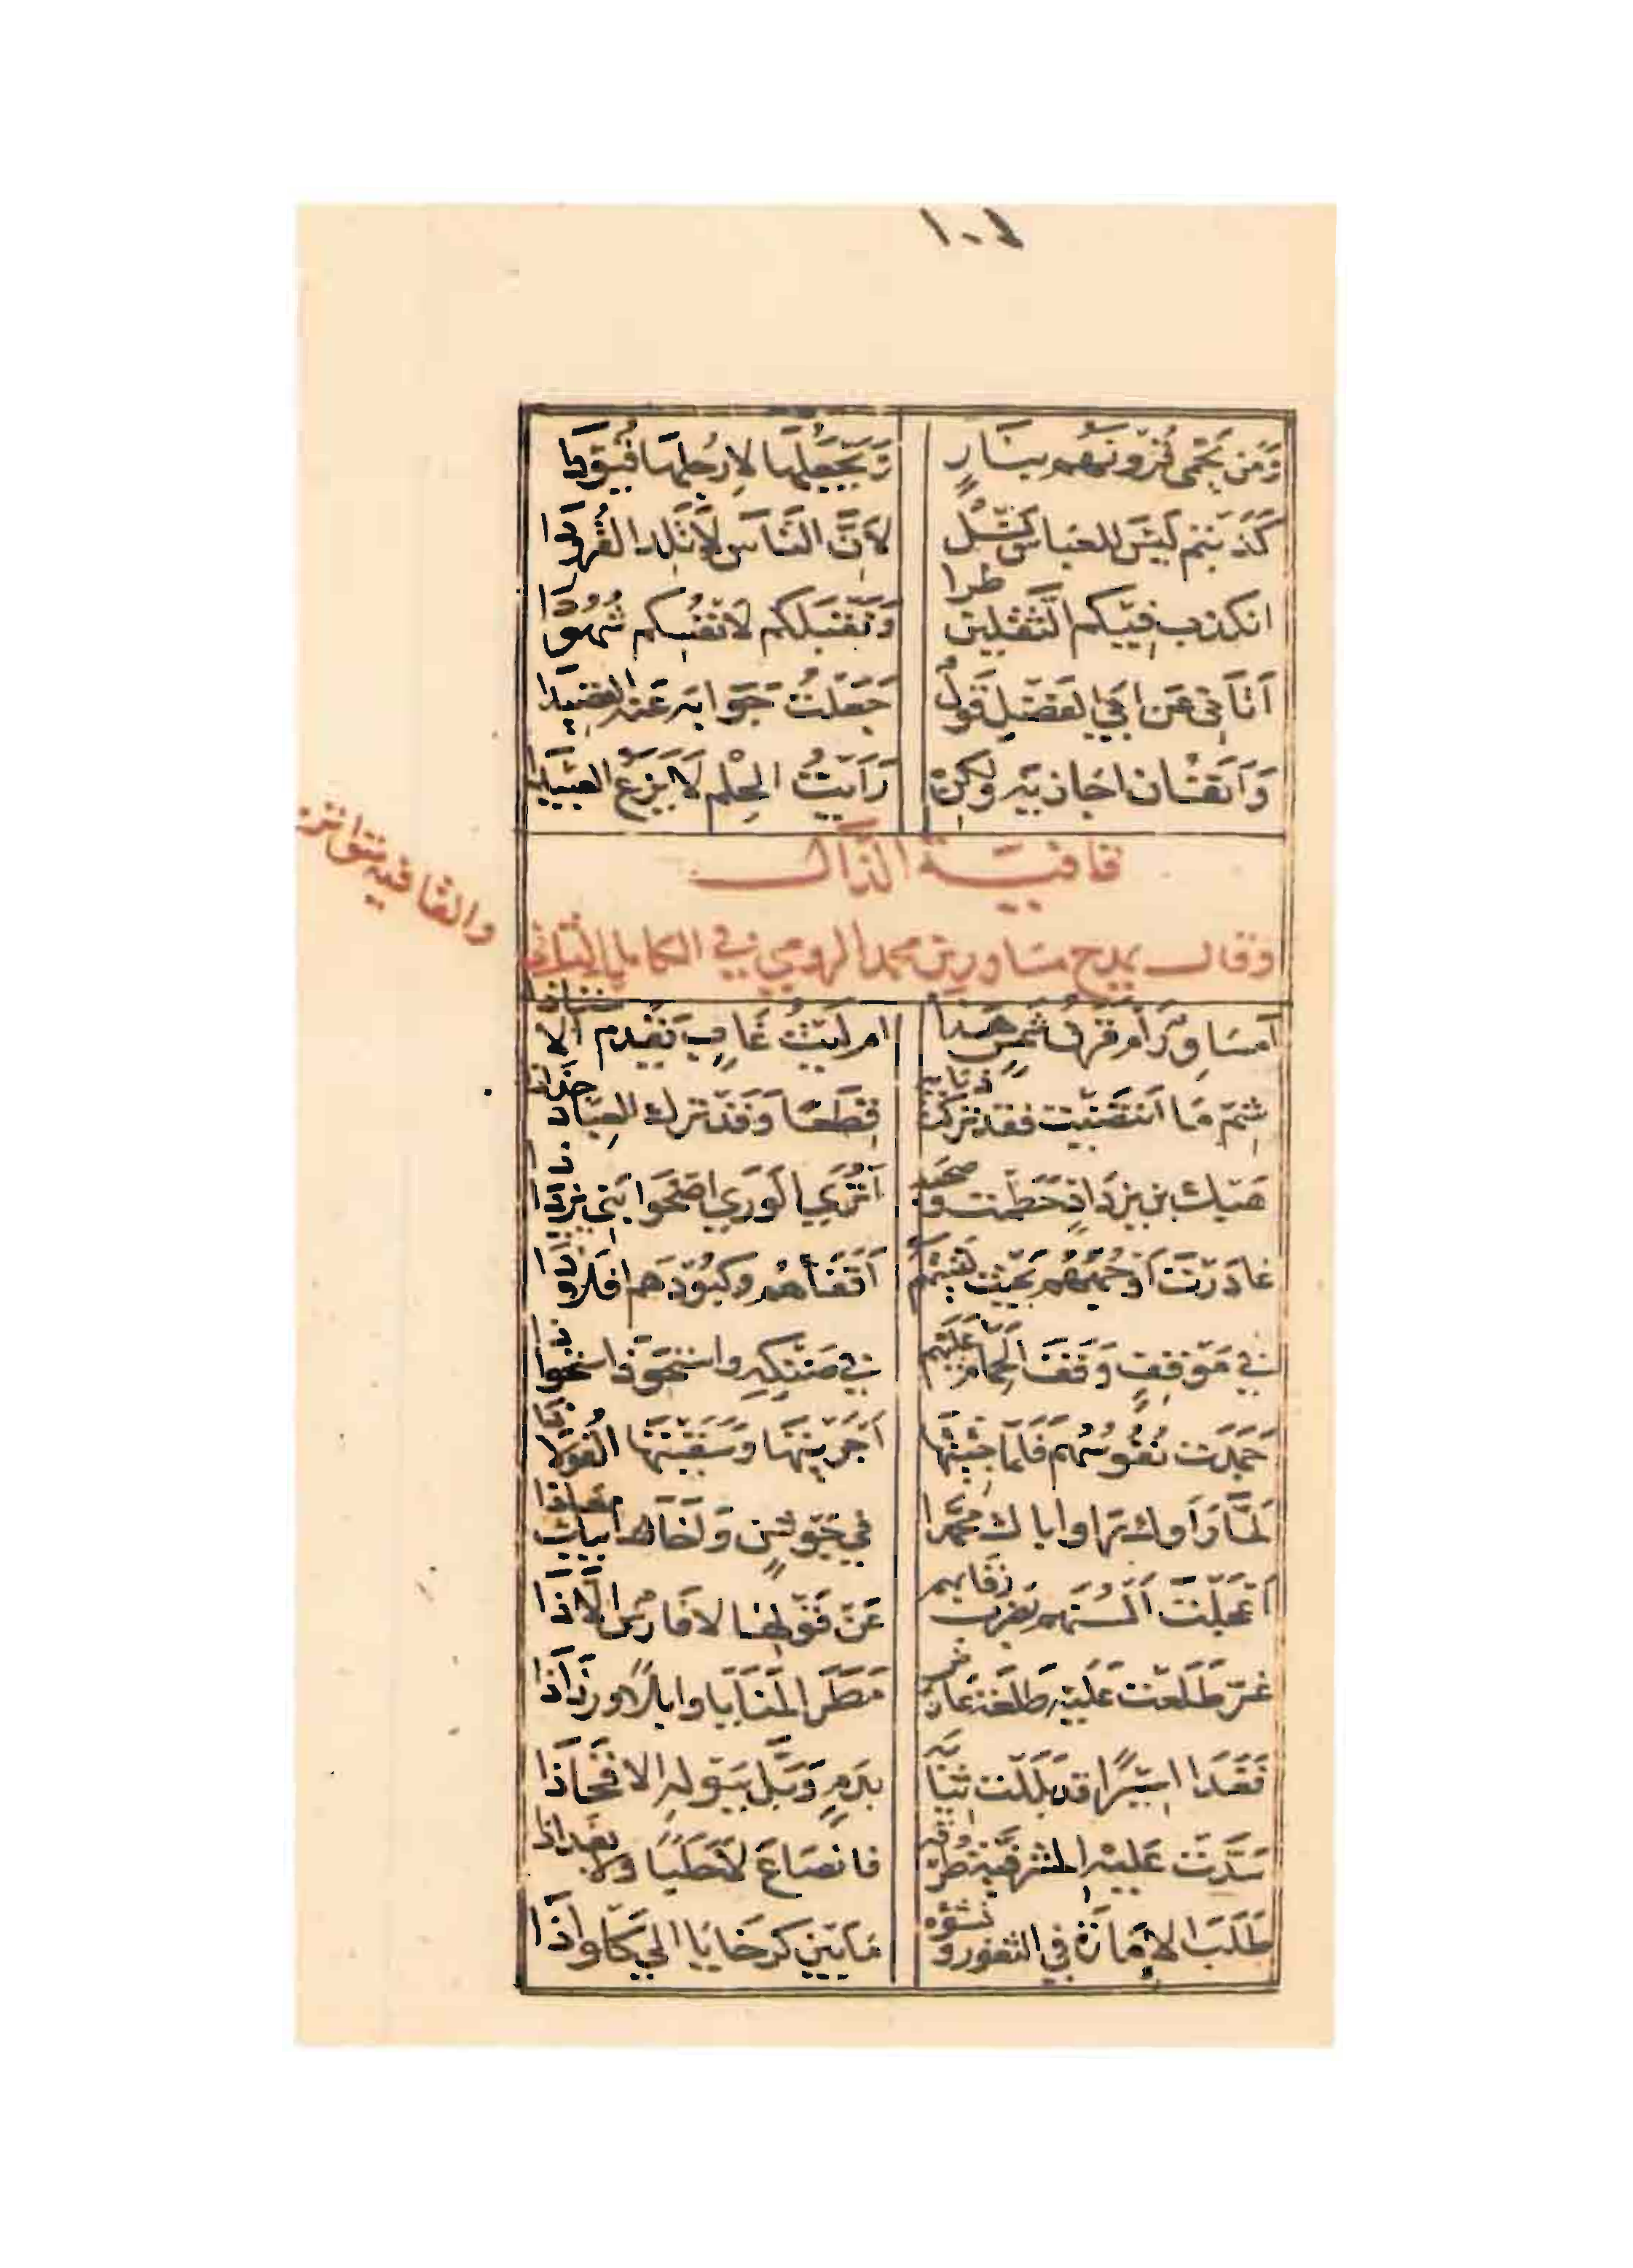 وَمَن يَحْمِى قُرُونَهُم بِنَارٍ تَجْعَلُهَا لِأَرْجُلِهَا قُيُودَا
كَذَبْتُم لَيْسَ لِلعَبَّاسِ نَسْلٌ لأَنَّ النَّاسَ لَا تَلِدُ القُرُودَا
انكذب فِيكم الثَّقَلَيْنِ طرا وَنَقْبَلكُم لأنفُسِكُم شُهُودَا
أَتَانِى عَن أَبِي الفَضْلِ قَوْلٌ جَعَلْتُ جَوَابَهُ عَنهُ القَصِيدَا
وَآنَفَتَان اجازيه وَلكِنْ رَأَيْتُ الحِلْمَ لَا يَزَعُ العَبِيدَا
قافية الذال
وقال يمدح مساور بن محمد الرومي في الكامل الثاني
والقافية متواتر
أَمُسَاوِرٌ أَم قَرْنُ شَمْسٍ هَذَا ام لَيْثُ غَابٍ يَقْدُمُ الاستاذا
شِمْ مَا انْتَضَيْتَ فقد تَرَكْتَ ذبابه قِطَعًا وَقَدْ تَرَكَ العِبَادَ جُذَاذَا
هَبْكَ ابن يَزْدَاذٍ حَطَمْتَ وصحبه أَتُرَي الوَرَي اضحَوا بَنِي يَزْدَاذَا
غَادَرْتَ أَوْجُهَهُم بِحَيْثُ لَقِيتَهُم أَقْفَاءَهُم وكُبُودَهم افلاذا
في مَوْقِفٍ وَقَفَ الحِمَامُ عَلَيْهِم في ضَنْكِهِ واسْتَحْوَذَ اسْتِحْوَاذَا
جَمَدَت نُفُوسُهُم فَلَمَّا جِئْتَهَا أَجْرَيْتَهَا وَسَقَيْتَهَا الفُولَاذَا
لَمَّا رَأَوك رَاوا اباك مُحَمَّدا في جَوْشَنٍ وَأَخَا أبيك مُعَاذَا
أَعْجَلْتَ أَلْسُنَهُم بضرب رقابهم عَنْ قَوْلِهِمْ لا فَارِسٌ الا ذَا
غِرّ طَلَعْتَ عَلَيْهِ طَلْعَةَ عَارِضٍ مَطَرَ المَنَايَا وابلًا ورَذَاذَا
فَغَدَا أَسِيرًا قد بَلَلْتَ ثِيَابَهُ بِدَمٍ وَبَلَّ بِبَوْلِهِ الافْخَاذَا
سَدَّتْ عَلَيْهِ المَشْرَفِيَّةُ طُرْقَهُ فانصَاعَ لَا حَلَبًا ولا بَغْدَاذَا
طَلَبَ الإِمَارَةَ فِي الثُّغُورِ وَنَشْؤُهُ مَا بَيْنَ كَرْخَايَا إلي كَلْوَاذَا